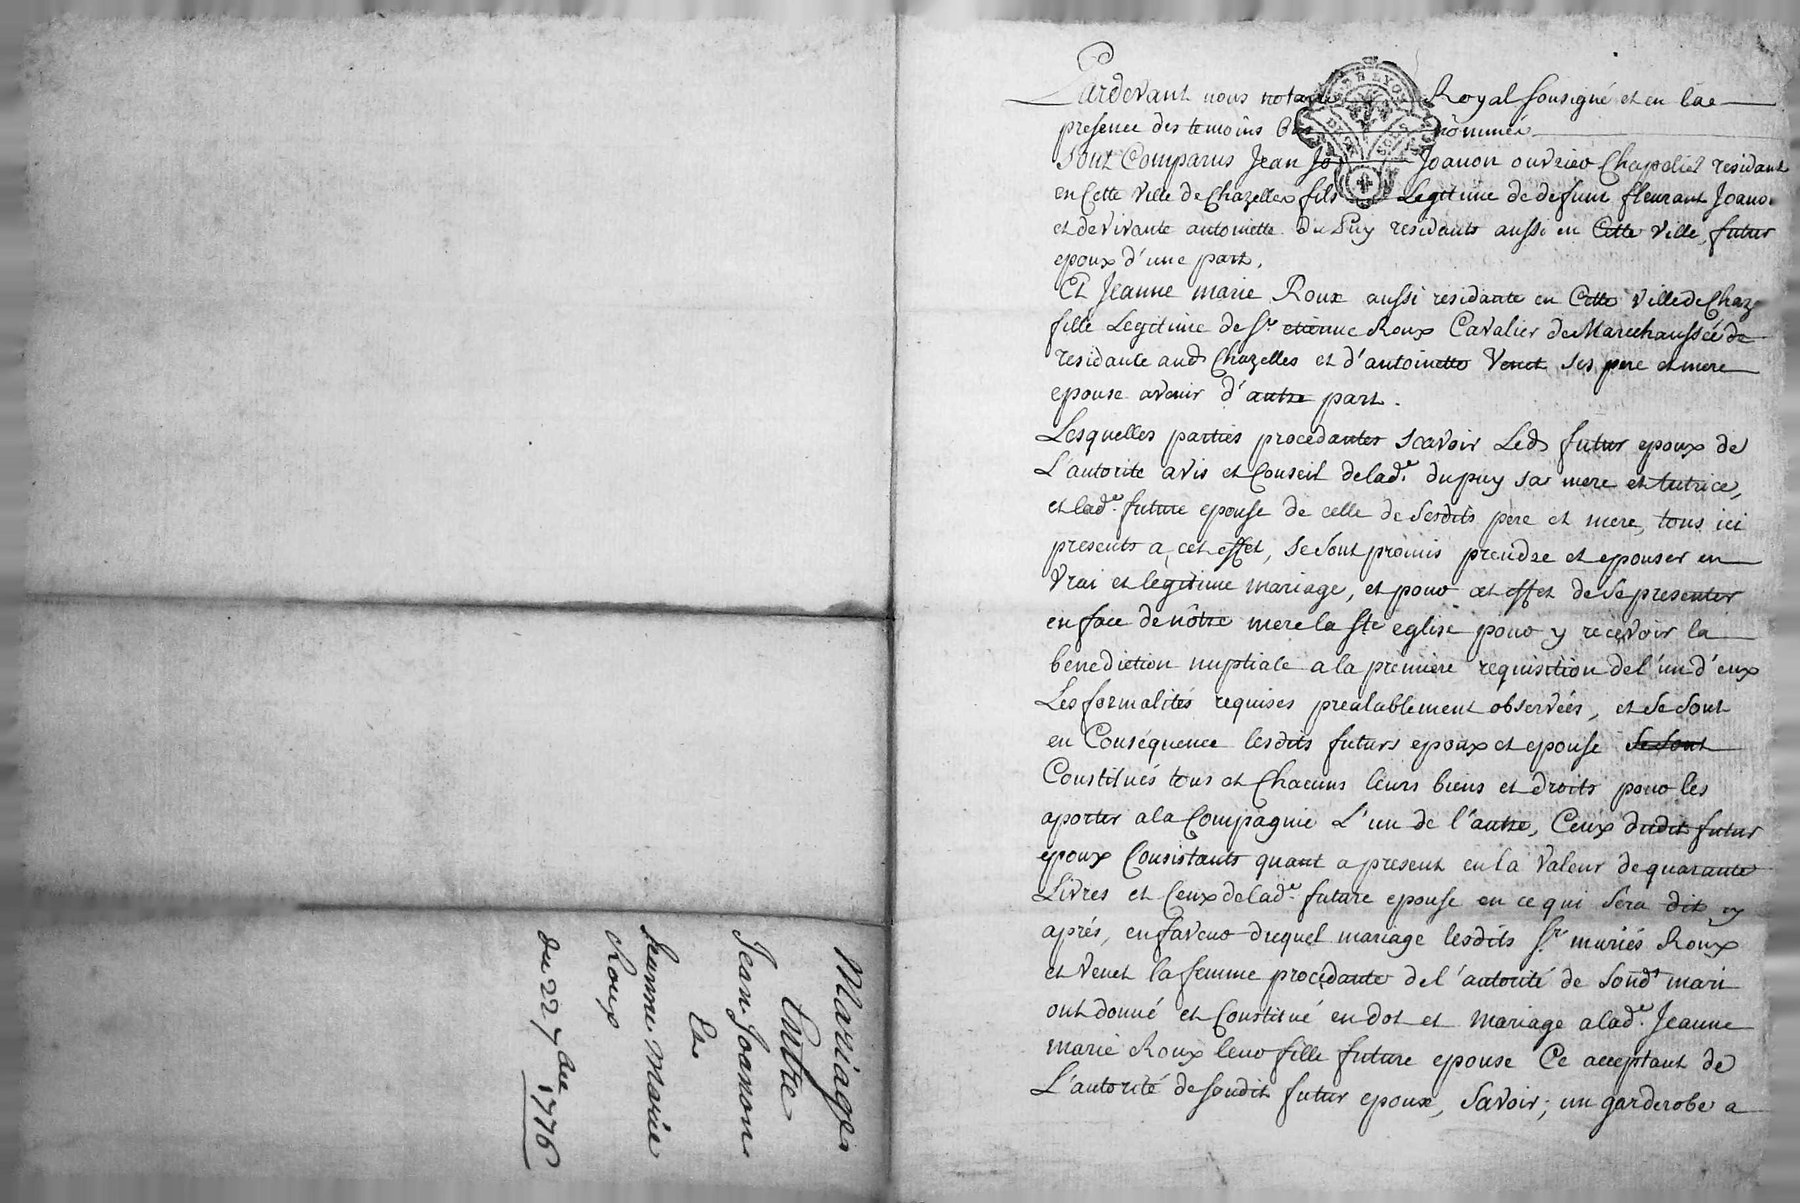 Mariage
Entre
Jean Joannon
Et
Jeanne Marie
Roux
du 22 7bre 1776
Pardevant nous notaire Royal sousigné et en la
presence des temoins nommés
Sont Comparus Jean Joanon ouvrier Chapelier residant
en Cette ville de Chazelles fils Legitime de defunt fleurant Joanon
et de vivante antoinette du Puy residants aussi en Cette ville, futur
epoux d'une part,
Et Jeanne marie Roux aussi residante en Cette ville de Chaz
fille Legitime de Sr etienne Roux Cavalier de Marechaussée de
residante aud Chazelles et d'antoinette Venet ses pere et mere
epouse avenir d'autre part.
Lesquelles parties procedantes scavoir Led futur epoux de
L'autorite avis et Conseil de lade. dupuy sa mere et tutrice,
et lade. future epouse de celle de Sesdits pere et mere, tous ici
presents a cet effet, se sont promis prendre et epouser en
vrai et legitime mariage, et pour cet effet de se presenter
en face de nôtre mere la Ste eglise pour y recevoir la
benediction nuptiale a la premiere requisition de l'un d'eux
Les formalités requises prealablement observées, et se sont
en Conséquence lesdits futurs epoux et epouse se sont
Constitués tous et Chacuns leurs biens et droits pour les
aporter a la Compagnie L'un de l'autre, Ceux dudit futur
epoux Consistants quant a present en la valeur de quarante
Livres et Ceux de lade. future epouse en ce qui sera dit cy
après, en faveur duquel mariage lesdits Sr mariés Roux
et Venet la femme procedante de l'autorité de sond mari
ont donné et Constitué en dot et mariage a lade. Jeanne
marie Roux leur fille future epouse Ce acceptant de
L'autorité de soudit futur epoux, Savoir; un garderobe a